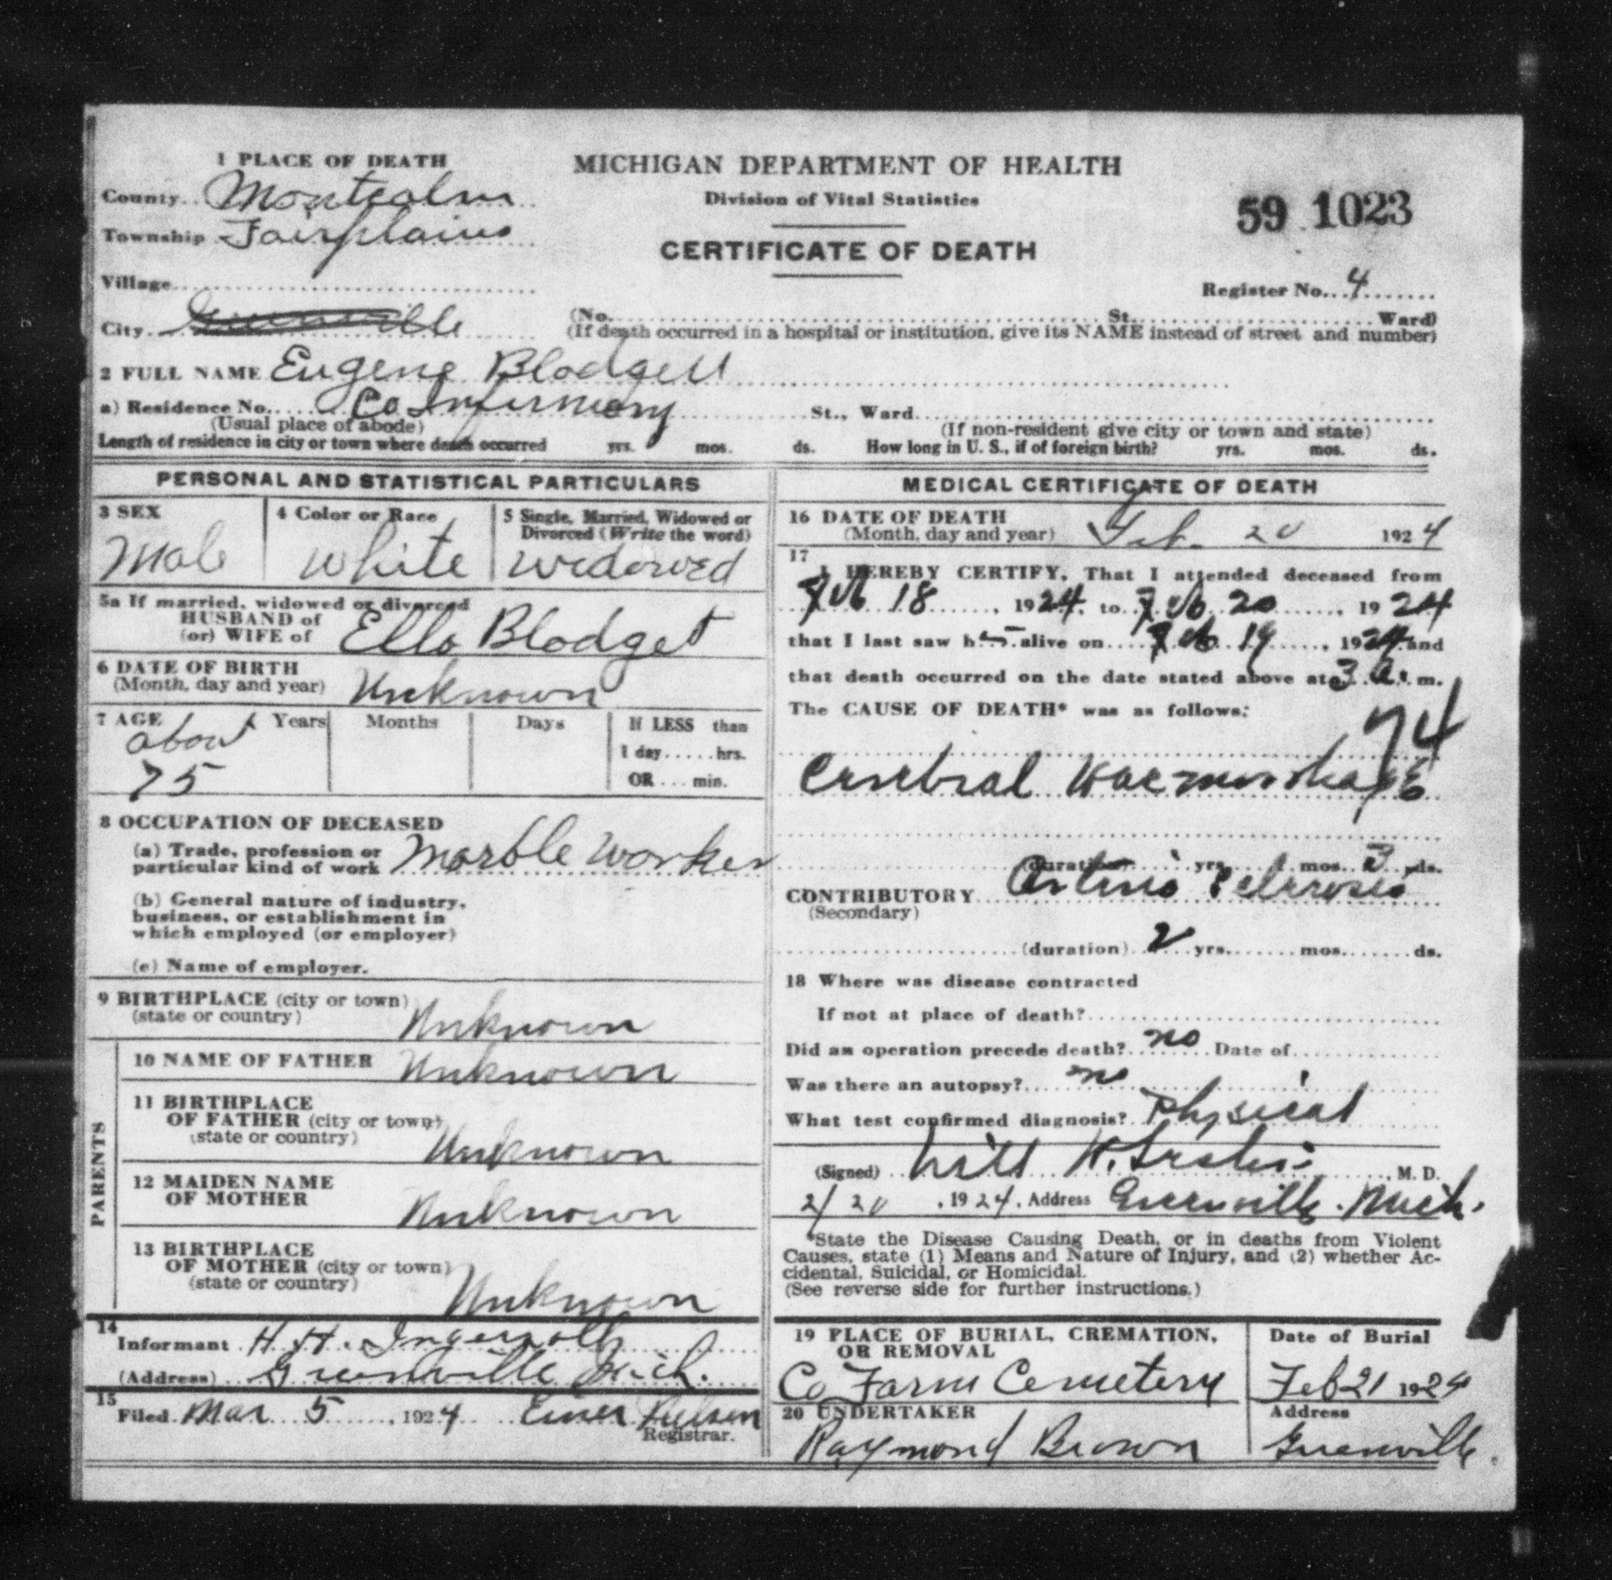 1 PLACE OF DEATH
MICHIGAN DEPARTMENT OF HEALTH
Division of Vital Statistics
CERTIFICATE OF DEATH
59 1023
County Montcalm
Township Fairplains
Village
City Greenville
Register No. 4
(No. St. Ward)
(If death occurred in a hospital or institution, give its NAME instead of street and number)
2 FULL NAME Eugene Blodgett
a) Residence No. Co Infirmary St., Ward
(Usual place of abode) (If non-resident give city or town and state)
Length of residence in city or town where death occurred yrs. mos. ds. How long in U. S., if of foreign birth? yrs. mos. ds.
PERSONAL AND STATISTICAL PARTICULARS
3 SEX 4 Color or Race 5 Single, Married, Widowed or
Divorced (Write the word)
Male White Widowed
5a If married, widowed or divorced
HUSBAND of
(or) WIFE of Ella Blodget
6 DATE OF BIRTH
(Month, day and year) Unknown
7 AGE Years Months Days If LESS than
about 1 day hrs.
75 OR min.
8 OCCUPATION OF DECEASED
(a) Trade, profession or
particular kind of work Marble Worker
(b) General nature of industry,
business, or establishment in
which employed (or employer)
(c) Name of employer.
9 BIRTHPLACE (city or town)
(state or country) Unknown
PARENTS
10 NAME OF FATHER Unknown
11 BIRTHPLACE
OF FATHER (city or town)
(state or country) Unknown
12 MAIDEN NAME
OF MOTHER Unknown
13 BIRTHPLACE
OF MOTHER (city or town)
(state or country) Unknown
14
Informant H. H. Ingersoll
(Address) Greenville Mich.
15
Filed Mar 5, 1924 Einer Nielsen
Registrar.
MEDICAL CERTIFICATE OF DEATH
16 DATE OF DEATH
(Month, day and year) Feb. 20 1924
17
I HEREBY CERTIFY, That I attended deceased from
Feb 18, 1924, to Feb 20, 1924
that I last saw h alive on Feb 19, 1924 and
that death occurred on the date stated above at 3 A. m.
The CAUSE OF DEATH* was as follows:
74
Cerebral Haemorrhage
(duration) yrs. mos. 3 ds.
CONTRIBUTORY Arterio Sclerosis
(Secondary)
(duration) 2 yrs. mos. ds.
18 Where was disease contracted
If not at place of death?
Did an operation precede death? no Date of
Was there an autopsy? no
What test confirmed diagnosis? Physical
(Signed) Will H. , M. D.
2/20, 1924. Address Greenville. Mich.
*State the Disease Causing Death, or in deaths from Violent
Causes, state (1) Means and Nature of Injury, and (2) whether Ac-
cidental, Suicidal, or Homicidal.
(See reverse side for further instructions.)
19 PLACE OF BURIAL, CREMATION, Date of Burial
OR REMOVAL
Co Farm Cemetery Feb 21 1924
20 UNDERTAKER Address
Raymond Brown Greenville.